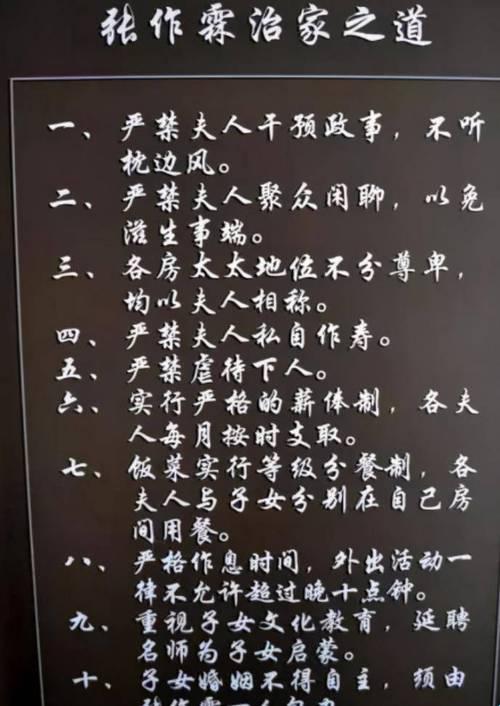 张作霖治家之道
一、严禁夫人干预政事，不听
枕边风。
二、严禁夫人聚众闲聊，以免
滋生事端。
三、各房太太地位不分尊卑，
均以夫人相称。
四、严禁夫人私自作寿。
五、严禁虐待下人。
六、实行严格的薪俸制，各夫
人每月按时支取。
七、饭菜实行等级分餐制，各
夫人与子女分别在自己房
间用餐。
八、严格作息时间，外出活动一
律不允许超过晚十点钟。
九、重视子女文化教育，延聘
名师为子女启蒙。
十、子女婚姻不得自主，须由
张作霖一人包办